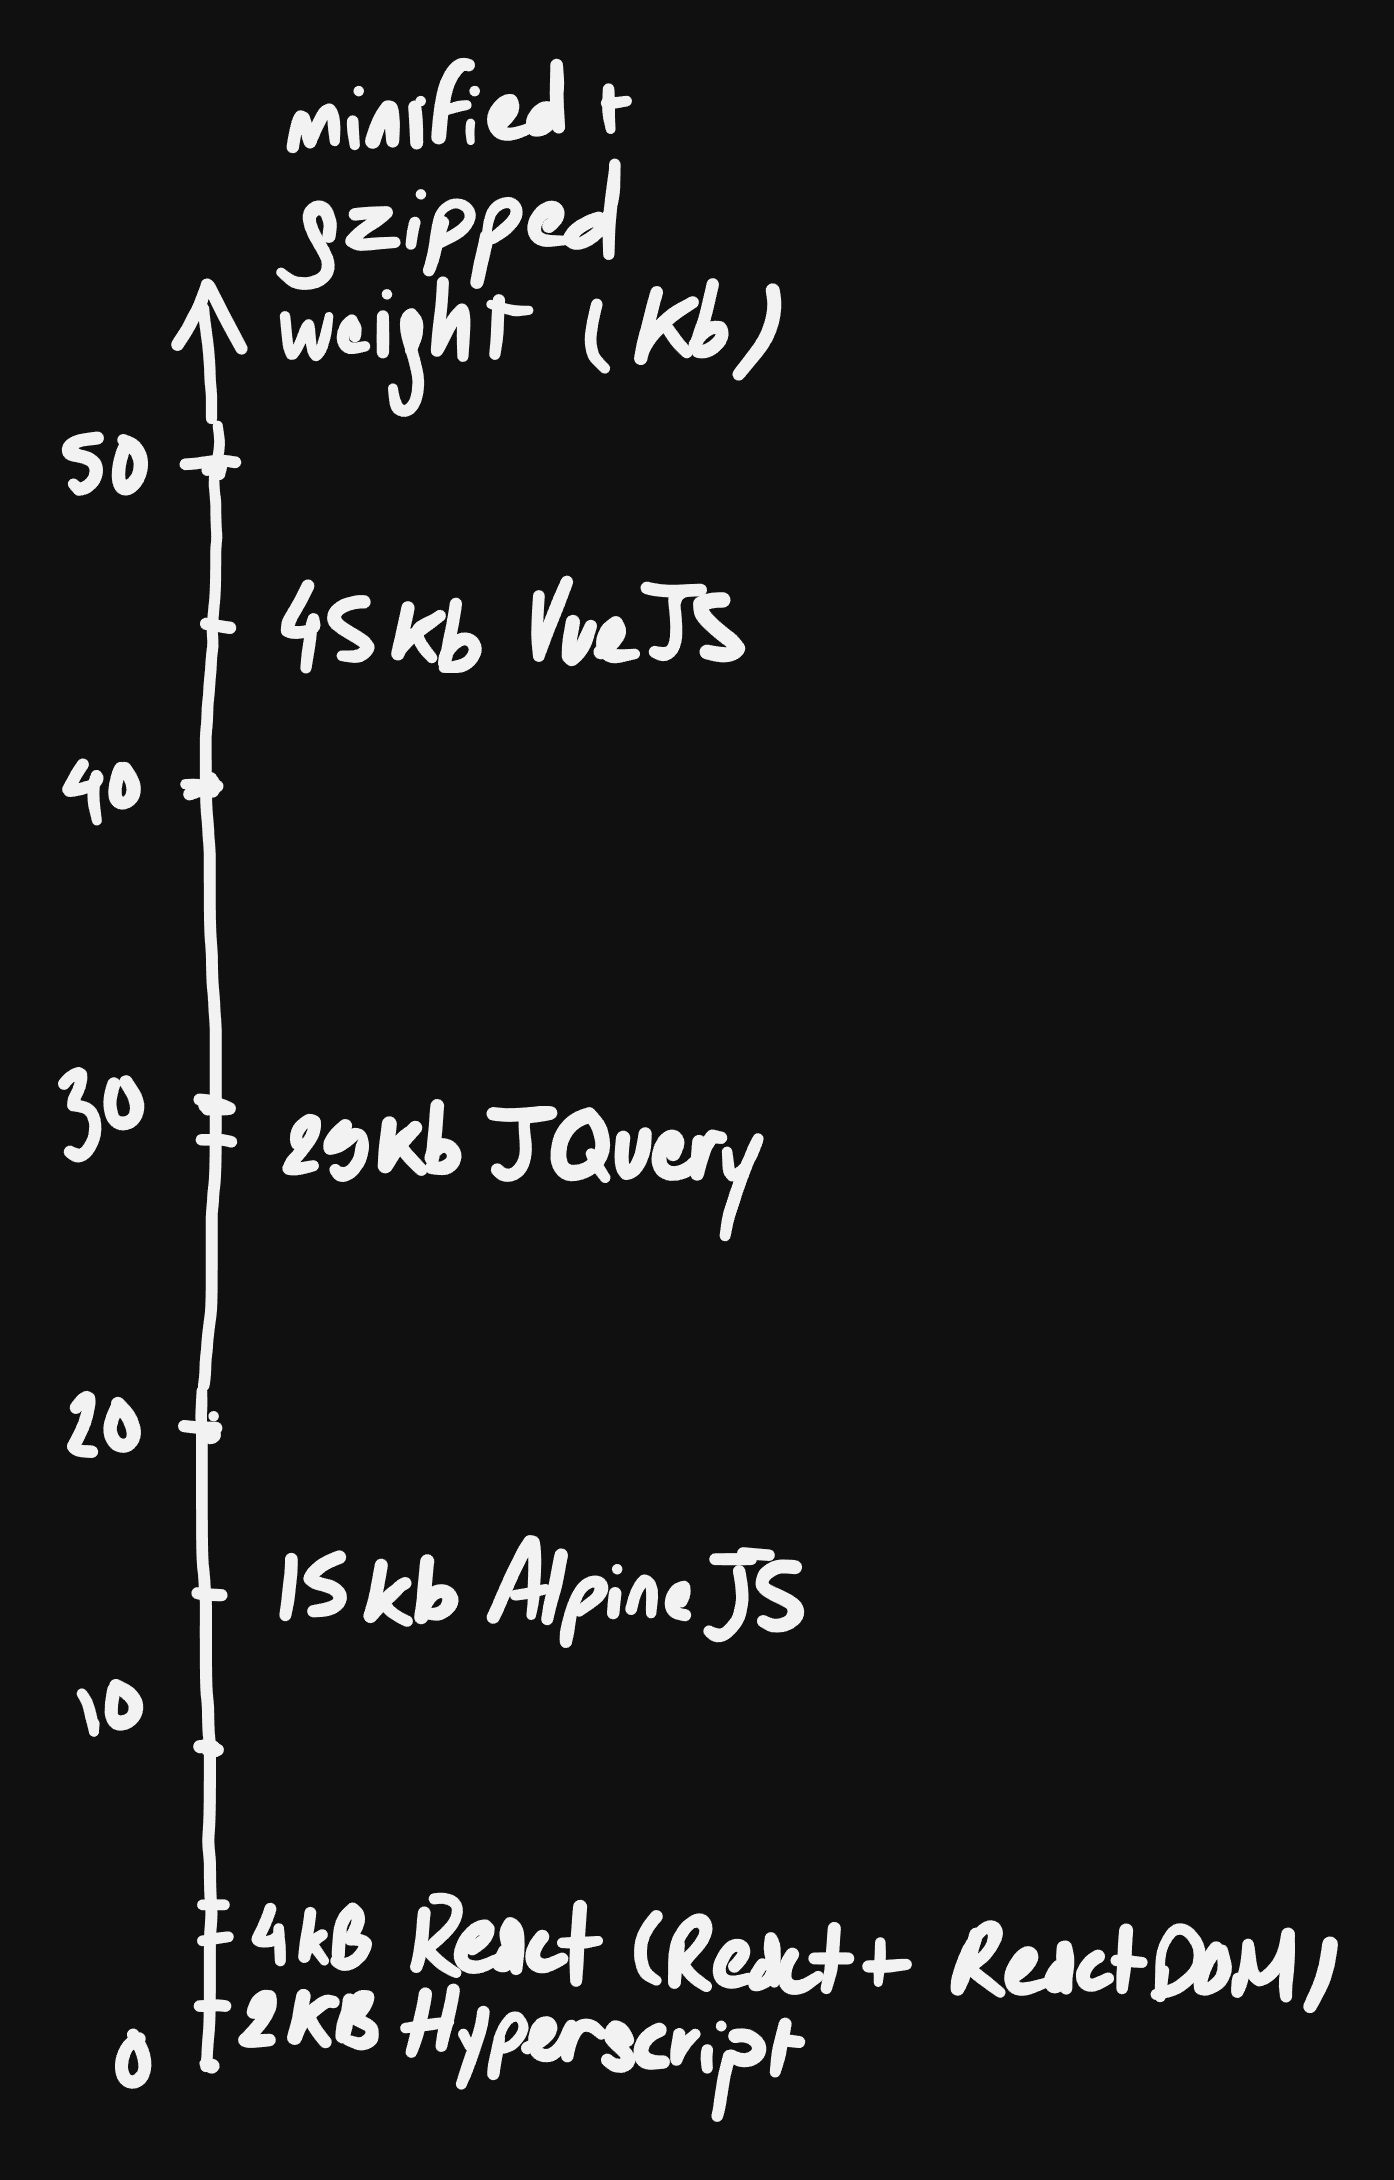 minified +
gzipped
weight (Kb)
50
45Kb VueJS
40
30
29Kb JQuery
20
15Kb AlpineJS
10
4kB React (React + ReactDOM)
2KB Hyperscript
0